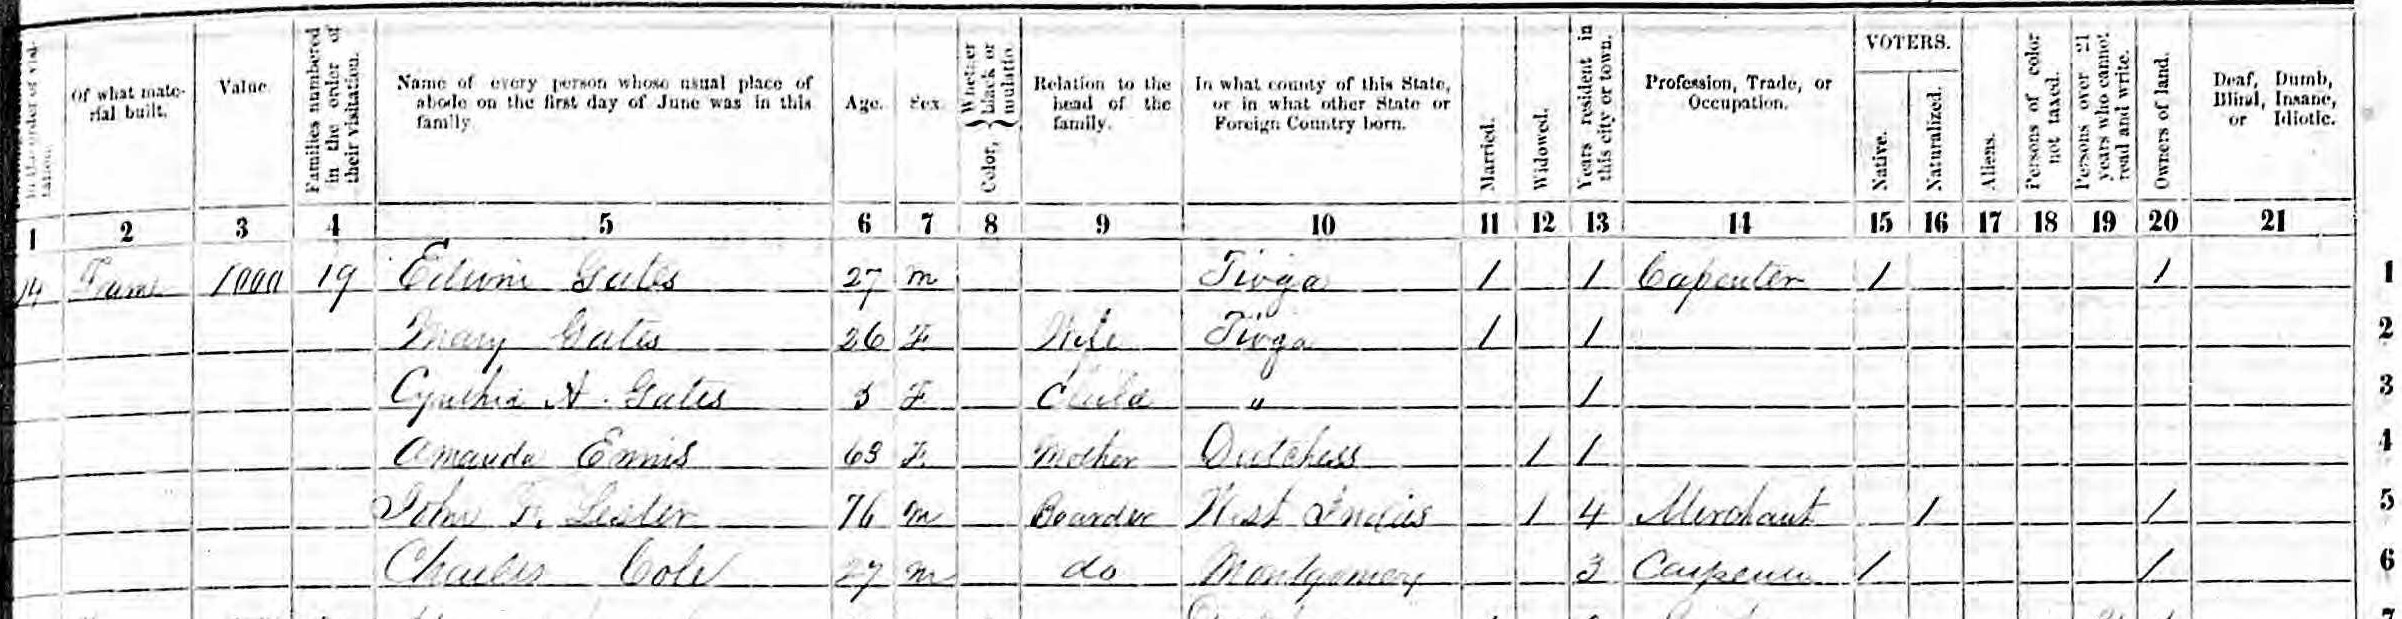 in the order of visi-
tation.
Of what mate-
rial built.
Value.
Families numbered
in the order of
their visitation.
Name of every person whose usual place of
abode on the first day of June was in this
family.
Age.
Sex.
Color, { Whether
black or
mulatto.
Relation to the
head of the
family.
In what county of this State,
or in what other State or
Foreign Country born.
Married.
Widowed.
Years resident in
this city or town.
Profession, Trade, or
Occupation.
VOTERS.
Native.
Naturalized.
Aliens.
Persons of color
not taxed.
Persons over 21
years who cannot
read and write.
Owners of land.
Deaf, Dumb,
Blind, Insane,
or Idiotic.
1 2 3 4 5 6 7 8 9 10 11 12 13 14 15 16 17 18 19 20 21
14 Frame 1000 19 Edwin Gates 27 m Tioga 1 1 Capenter 1 1 1
Mary Gates 26 F Wife Tioga 1 1 2
Cynthia A. Gates 5 F Child " 1 3
Amanda Ennis 63 F. Mother Dutchess 1 1 4
John F. Lester 76 m Boarder West Indies 1 4 Merchant 1 1 5
Charles Cole 27 m do Montgomery 3 Carpenter 1 1 6
7